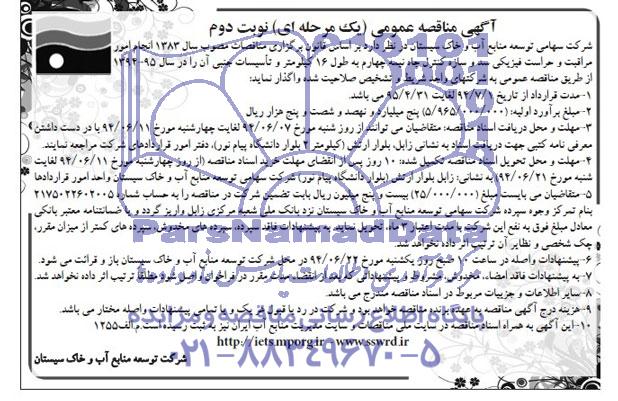 آگهی مناقصه عمومی (یک مرحله ای) نوبت دوم
شرکت سهامی توسعه منابع آب و خاک سیستان در نظر دارد بر اساس قانون برگزاری مناقصات مصوب سال ۱۳۸۳ انجام امور
مراقبت و حراست فیزیکی سد و سازه کنترل چاه نیمه چهارم به طول ۱۶ کیلومتر و تأسیسات جنبی آن را در سال ۹۵-۱۳۹۴
از طریق مناقصه عمومی به شرکتهای واجد شرایط و تشخیص صلاحیت شده واگذار نماید:
۱-مدت قرارداد از تاریخ ۹۴/۷/۱ لغایت ۹۵/۴/۳۱ می باشد.
۲-مبلغ برآورد اولیه: (۵/۹۶۵/۰۰۰/۰۰۰) پنج میلیارد و نهصد و شصت و پنج هزار ریال
۳-مهلت و محل دریافت اسناد مناقصه: متقاضیان می توانند از روز شنبه مورخ ۹۴/۰۶/۰۷ لغایت چهارشنبه مورخ ۹۴/۰۶/۱۱ با در دست داشتن
معرفی نامه کتبی جهت دریافت اسناد به نشانی زابل، بلوار ارتش (کیلومتر ۲ بلوار دانشگاه پیام نور)، دفتر امور قراردادهای شرکت مراجعه نمایند.
۴-مهلت و محل تحویل اسناد مناقصه تکمیل شده: ۱۰ روز پس از انقضای مهلت خرید اسناد مناقصه (از روز چهارشنبه مورخ ۹۴/۰۶/۱۱ لغایت
شنبه مورخ ۹۴/۰۶/۲۱) به نشانی: زابل بلوار ارتش (بلوار دانشگاه پیام نور) شرکت سهامی توسعه منابع آب و خاک سیستان واحد امور قراردادها
۵-متقاضیان می بایست مبلغ (۲۵/۰۰۰/۰۰۰) بیست و پنج میلیون ریال بابت تضمین شرکت در مناقصه را به حساب شماره ۲۱۷۵۰۲۲۶۰۲۰۰۵
بنام تمرکز وجوه سپرده شرکت سهامی توسعه منابع آب و خاک سیستان نزد بانک ملی شعبه مرکزی زابل واریز گردد و یا ضمانتنامه معتبر بانکی
معادل مبلغ فوق به نفع این شرکت با مدت اعتبار ۳ ماه، تحویل نماید. به پیشنهادات فاقد سپرده، سپرده های مخدوش، سپرده های کمتر از میزان مقرر،
چک شخصی و نظایر آن ترتیب اثر داده نخواهد شد.
۶- پیشنهادات واصله در ساعت ۱۰ صبح روز یکشنبه مورخ ۹۴/۰۶/۲۲ در محل شرکت توسعه منابع آب و خاک سیستان باز و قرائت می شود.
۷- به پیشنهادات فاقد امضاء، مخدوش، مشروط و پیشنهاداتی که بعد از انقضاء مدت مقرر در فراخوان واصل شود مطلقا ترتیب اثر داده نخواهد شد.
۸- سایر اطلاعات و جزییات مربوط در اسناد مناقصه مندرج می باشد.
۹- هزینه درج آگهی مناقصه به عهده برنده مناقصه خواهد بود و شرکت در رد یا قبول هر یک و یا تمامی پیشنهادات واصله مختار می باشد.
۱۰- این آگهی به همراه اسناد مناقصه در سایت ملی مناقصات و سایت مدیریت منابع آب ایران نیز به ثبت رسیده است.م الف۱۲۵۵
http://iets.mporg.ir~http://www.sswrd.ir
شرکت توسعه منابع آب و خاک سیستان
ParsNamadData
پایگاه اطلاع رسانی مناقصه و مزایده
۰۲۱-۸۸۳۴۹۶۷۰-۵